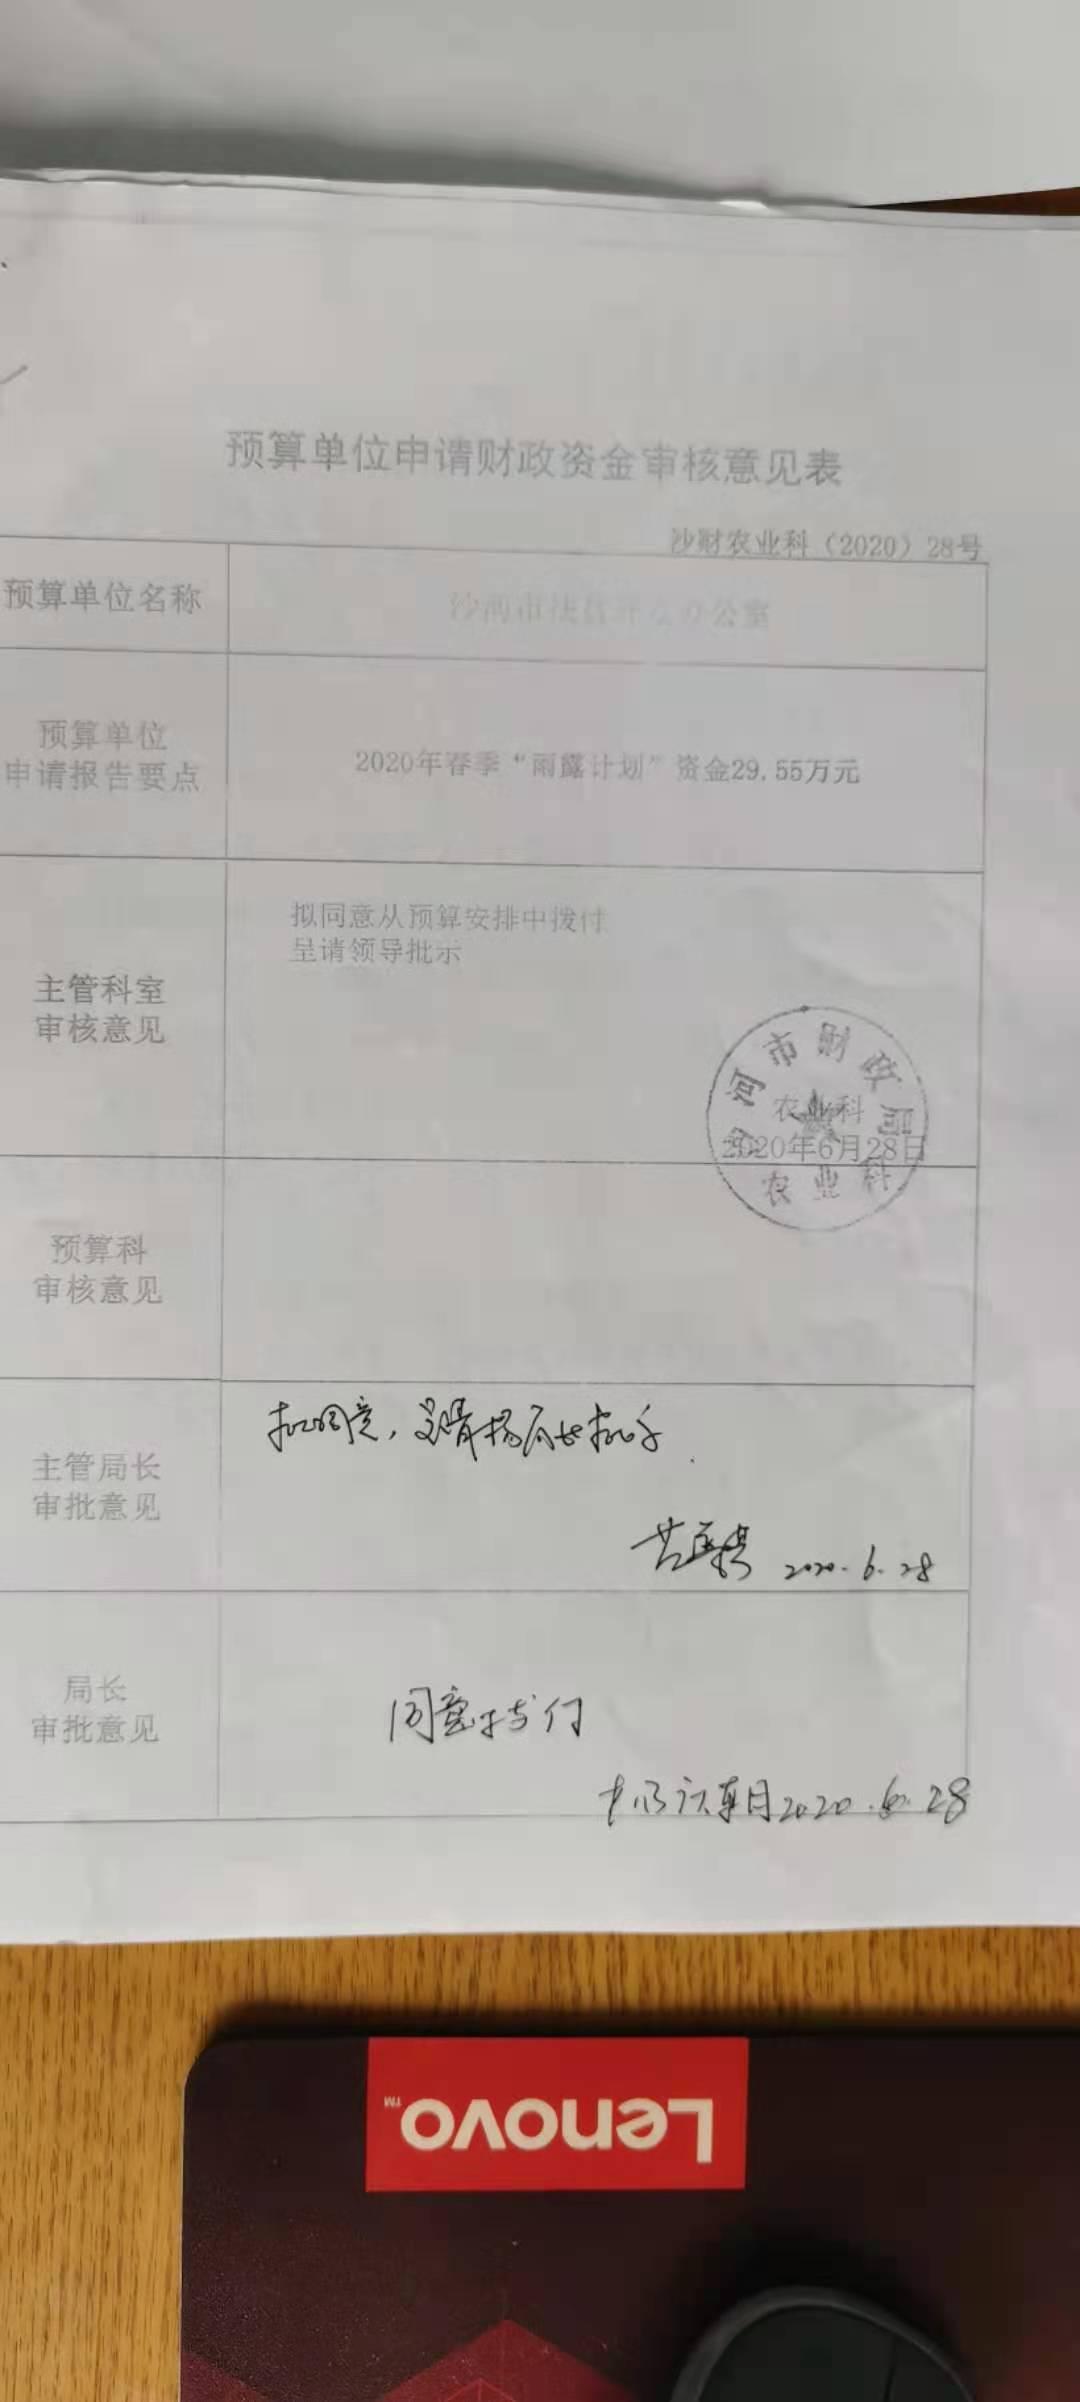 预算单位申请财政资金审核意见表
沙财农业科（2020）28号
预算单位名称
沙河市扶贫开发办公室
预算单位
申请报告要点
2020年春季“雨露计划”资金29.55万元
主管科室
审核意见
拟同意从预算安排中拨付
呈请领导批示
河市财政局
农业科
2020年6月28日
农业科
预算科
审核意见
主管局长
审批意见
拟同意，呈请杨局长批示.
2020.6.28
局长
审批意见
同意拨付
2020.6.28
Lenovo™